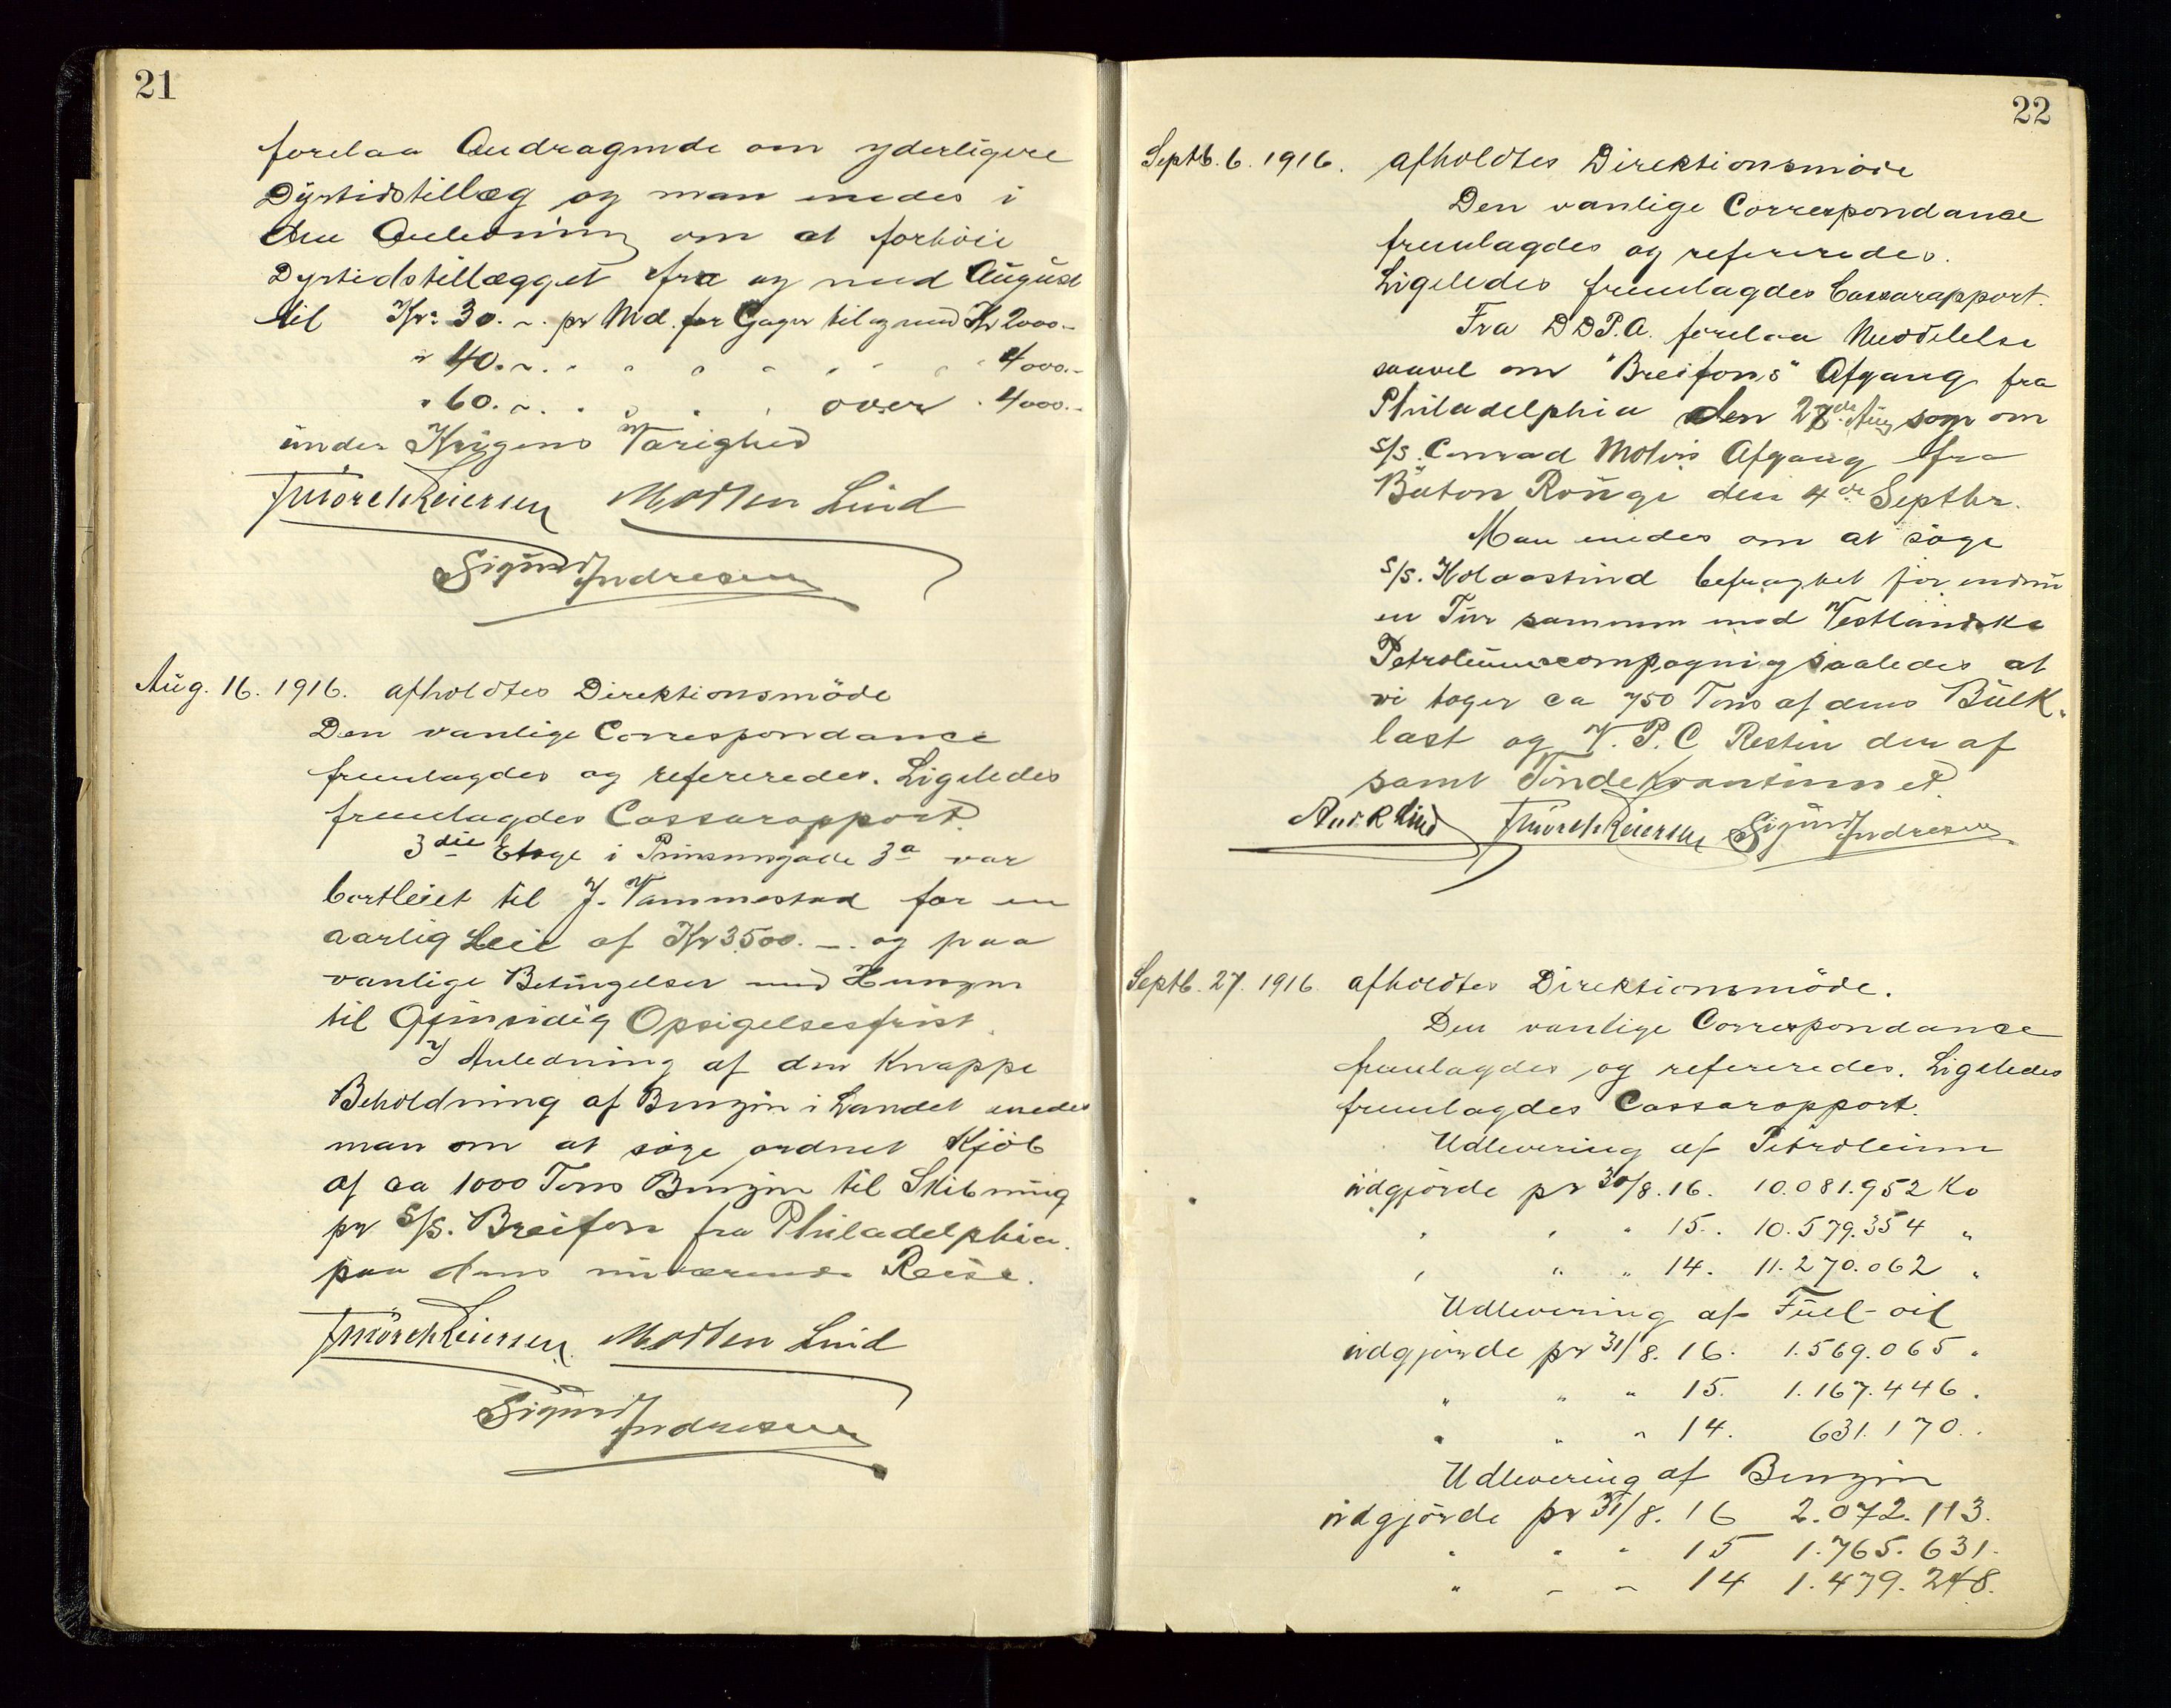 21
forelaa Andragende om yderligere
Dyrtidstillæg og man enedes i
den Anledning om at forhöie
Dyrtidstillægget fra og med August
til Kr. 30.~. pr Md. for Gager til og med Kr 2000.-
" 40.~. " " " " " " " 4000.-
" 60.~. " " " " over " 4000.-
under Krigens Varighed
J Mörch Reiersen Morten Lind
Sigurd Andresen
Aug. 16. 1916. afholdtes Direktionsmöde
Den vanlige Correspondance
fremlagdes og refereredes. Ligeledes
fremlagdes Cassarapport.
3die Etage i Prinsensgade 3a var
bortleiet til J. Vammestad for en
aarlig Leie af Kr 3500.-. og paa
vanlige Betingelser med Hensyn
til Gjensidig Opsigelsesfrist.
I Anledning af den knappe
Beholdning af Benzin i Landet enedes
man om at söge ordnet Kjöb
af ca 1000 Tons Benzin til Skibning
pr S/S. Breifon fra Philadelphia
paa dens nuværende Reise.
J Mörch Reiersen Morten Lind
Sigurd Andresen
22
Septb. 6. 1916. afholdtes Direktionsmöde
Den vanlige Correspondance
fremlagdes og refereredes.
Ligeledes fremlagdes Cassarapport.
Fra D D P. A. forelaa Meddelelse
saavel om "Breifons" Afgang fra
Philadelphia den 27de Aug som om
S/S. Conrad Mohrs Afgang fra
Baton Rouge den 4de Septbr.
Man enedes om at söge
S/S. Kolaastind befragtet for endnu
en Tur sammen med Vestlandske
Petroleumscompagni og saaledes at
vi tager ca 750 Tons af dens Bulk-
last og V. P. C Resten der af
samt Töndekvantumet.
And R Lind J Mörch Reiersen Sigurd Andresen
Septb. 27. 1916. afholdtes Direktionsmöde.
Den vanlige Correspondance
fremlagdes og refereredes. Ligeledes
fremlagdes Cassarapport.
Udlevering af Petroleum
udgjörde pr 30/8. 16. 10.081.952 Ko
" " " 15. 10.579.354 "
" " " 14. 11.270.062 "
Udlevering af Fuel-oil
udgjörde pr 31/8. 16. 1.569.065 "
" " " 15. 1.167.446 "
" " " 14. 631.170. "
Udlevering af Benzin
udgjörde pr 31/8. 16 2.072.113.
" " " 15 1.765.631.
" " " 14 1.479.248.